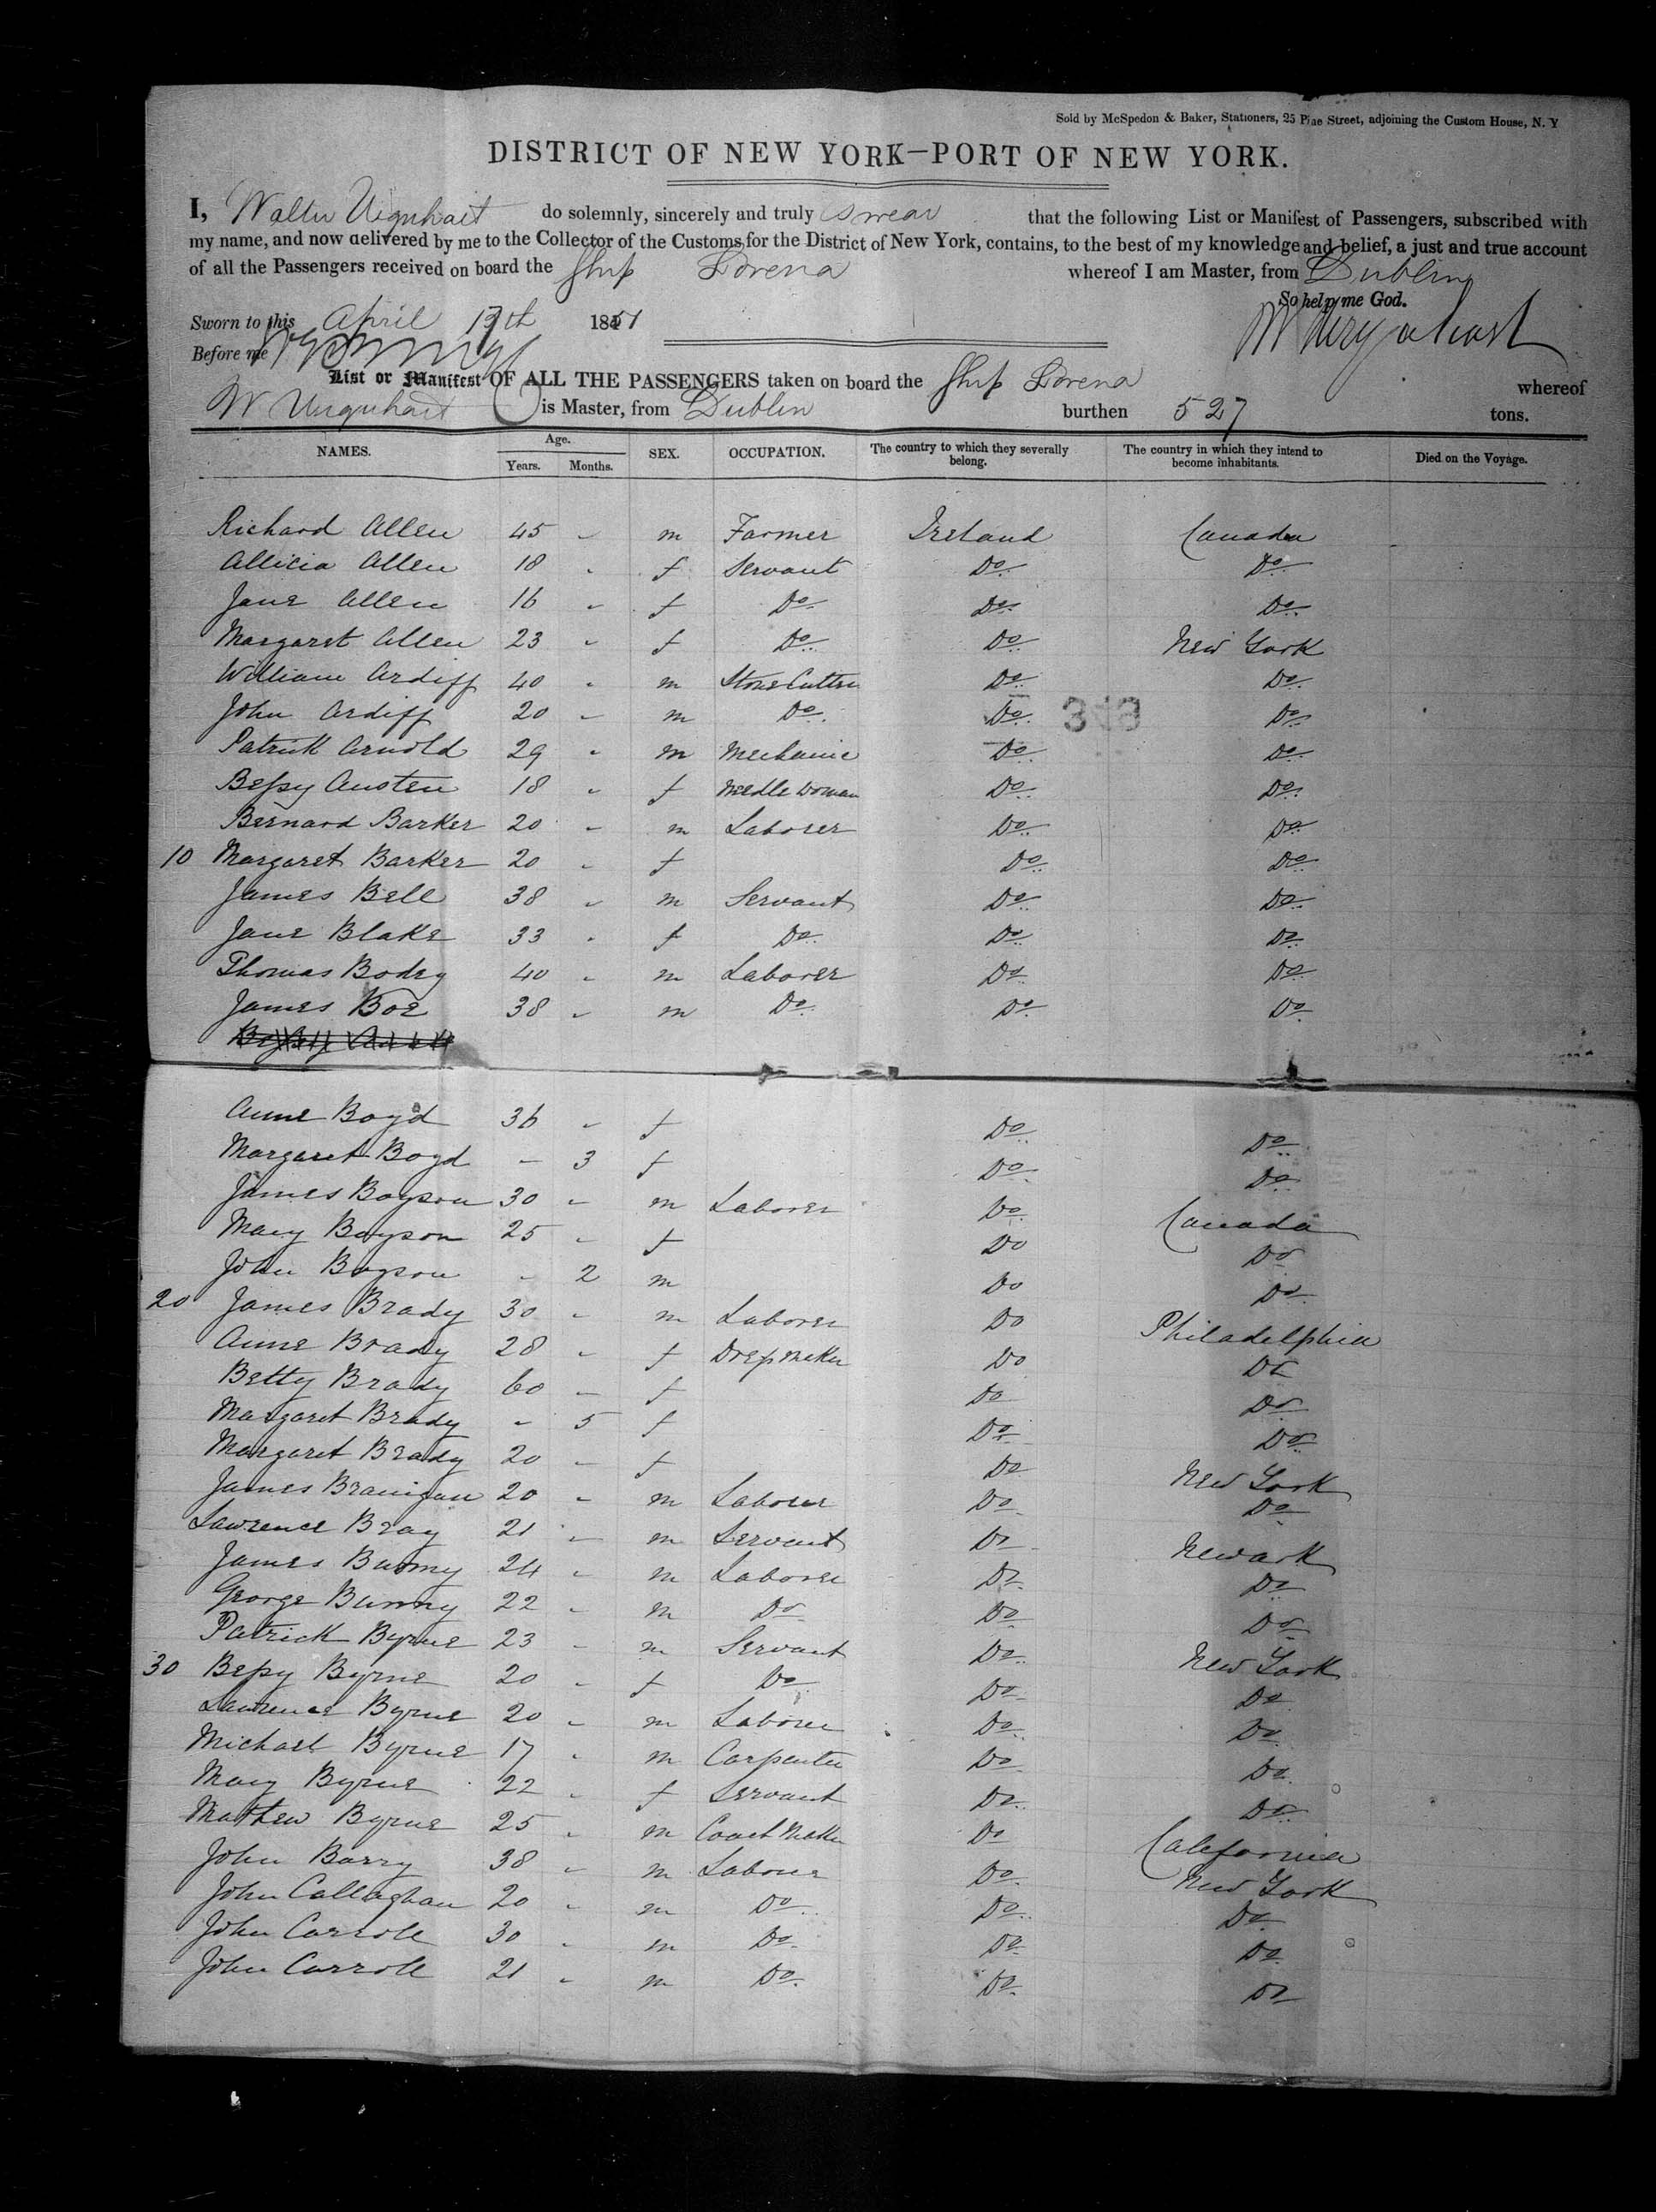 Sold by McSpedon & Baker, Stationers, 25 Pine Street, adjoining the Custom House, N. Y
DISTRICT OF NEW YORK—PORT OF NEW YORK.
I, Walter Urquhart do solemnly, sincerely and truly swear that the following List or Manifest of Passengers, subscribed with
my name, and now delivered by me to the Collector of the Customs for the District of New York, contains, to the best of my knowledge and belief, a just and true account
of all the Passengers received on board the Ship Lorena whereof I am Master, from Dublin
So help me God.
Sworn to this April 17th 1851 W Urquhart
Before me
List or Manifest OF ALL THE PASSENGERS taken on board the Ship Lorena whereof
W Urquhart is Master, from Dublin burthen 527 tons.
NAMES. Age. Years. Months. SEX. OCCUPATION. The country to which they severally belong. The country in which they intend to become inhabitants. Died on the Voyage.
Richard Allen 45 " m Farmer Ireland Canada
Allicia Allen 18 " f Servant Do Do
Jane Allen 16 " f Do Do Do
Margaret Allen 23 " f Do Do New York
William Ardiff 40 " m Stone Cutter Do Do
John Ardiff 20 " m Do Do 343 Do
Patrick Arnold 29 " m Mechanic Do Do
Bessy Austen 18 " f Needle Woman Do Do
Bernard Barker 20 " m Laborer Do Do
10 Margaret Barker 20 " f Do Do
James Bell 38 " m Servant Do Do
Jane Blake 33 " f Do Do Do
Thomas Bodey 40 " m Laborer Do Do
James Boe 38 " m Do Do Do
Anne Boyd 36 " f Do Do
Margaret Boyd – 3 f Do Do
James Boyson 30 " m Laborer Do Canada
Mary Boyson 25 " f Do Do
John Boyson " 2 m Do Do
20 James Brady 30 " m Laborer Do Philadelphia
Anne Brady 28 " f Dress Maker Do Do
Betty Brady 60 – f Do Do
Margaret Brady " 5 f Do Do
Margaret Brady 20 – f Do New York
James Branigan 20 " m Laborer Do Do
Lawrence Bray 21 " m Servant Do Newark
James Bunny 24 " m Laborer Do Do
George Bunny 22 " m Do Do Do
Patrick Byrne 23 " m Servant Do New York
30 Bessy Byrne 20 " f Do Do Do
Lawrence Byrne 20 " m Laborer Do Do
Michael Byrne 17 " m Carpenter Do Do
Mary Byrne 22 " f Servant Do Do
Mathew Byrne 25 " m Coach Maker Do California
John Barry 38 " m Laborer Do New York
John Callaghan 20 " m Do Do Do
John Carroll 30 " m Do Do Do
John Carroll 21 " m Do Do Do